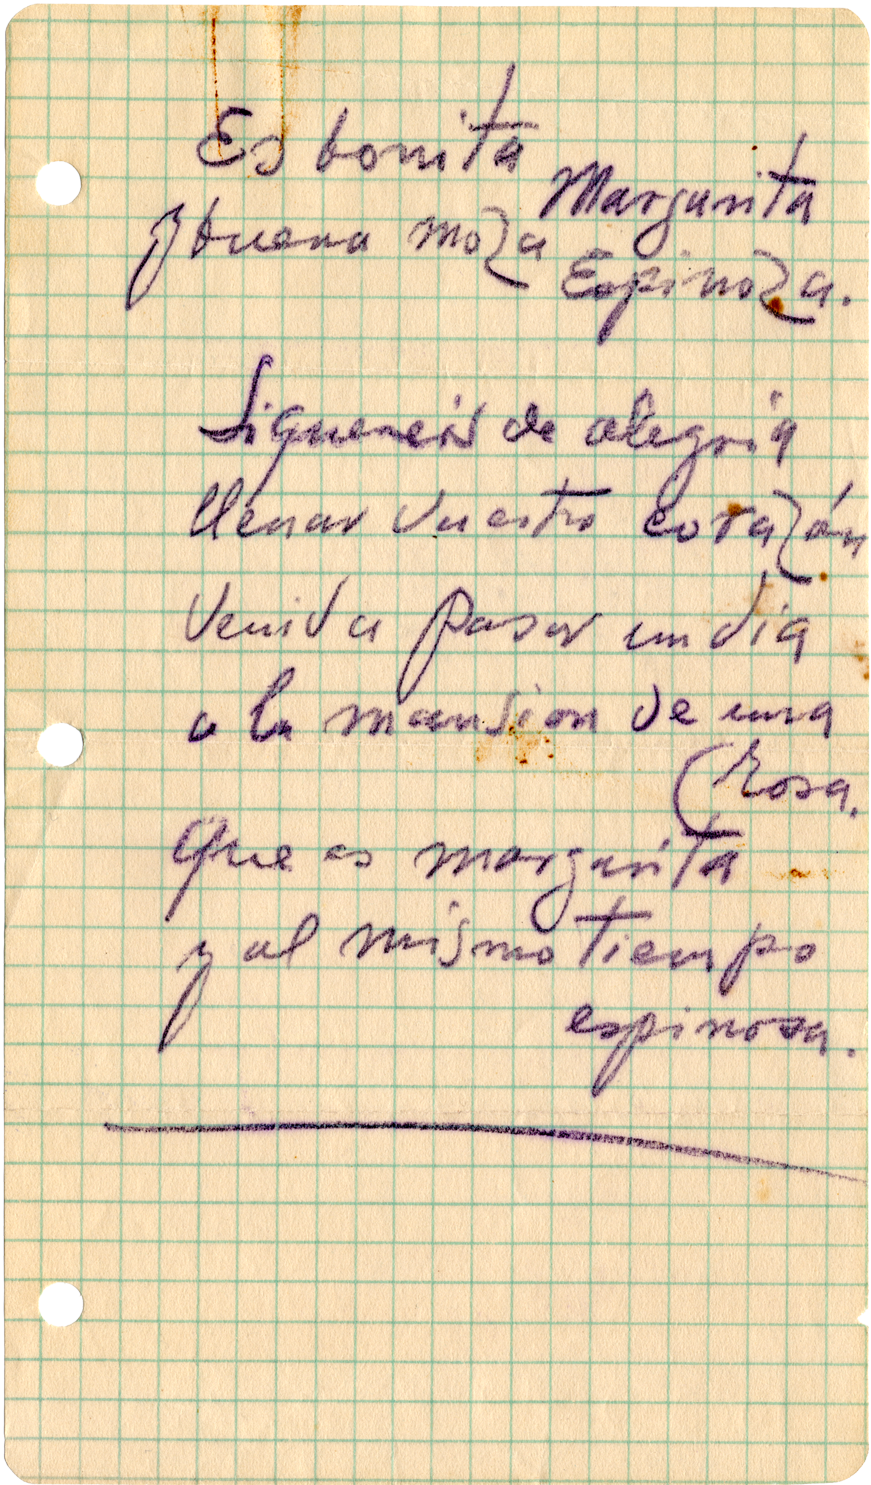 Es bonita
Margarita
y buena moza
Espinoza.
Siquereis de alegria
llenar vuestro corazón
venid a pasar un dia
a la mansion de una
(rosa.
que es margarita
y al mismo tiempo
espinosa.